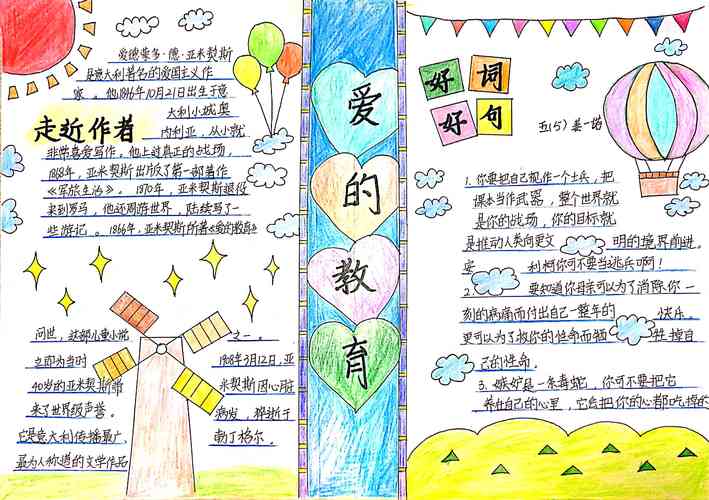 爱德蒙多·德·亚米契斯
是意大利著名的爱国主义作
家。他1846年10月21日出生于意
大利小城奥
内利亚，从小就
走近作者
非常喜爱写作。他上过真正的战场，
1868年，亚米契斯出版了第一部著作
《军旅生活》。1870年，亚米契斯退役
来到罗马，他还周游世界，陆续写了一
些游记。1866年，亚米契斯所著《爱的教育》
问世，这部儿童小说
立即为当时
40岁的亚米契斯带
来了世界级声誉。
它是意大利传播最广、
最为人称道的文学作品
之一。
1908年3月12日，亚
米契斯因心脏
病发，猝逝于
勃丁格尔。
爱的教育
好词
好句
五(5) 姜一诺
1. 你要把自己视作一个士兵，把
课本当作武器，整个世界就
是你的战场，你的目标就
是推动人类向更文明的境界前进。
安利柯你可不要当逃兵啊！
2. 要知道你母亲可以为了消除你一
刻的病痛而付出自己一整年的快乐。
更可以为了救你的性命而牺牲掉自
己的性命。
3. 嫉妒是一条毒蛇，你可不要把它
养在自己的心里，它会把你的心都吃掉的